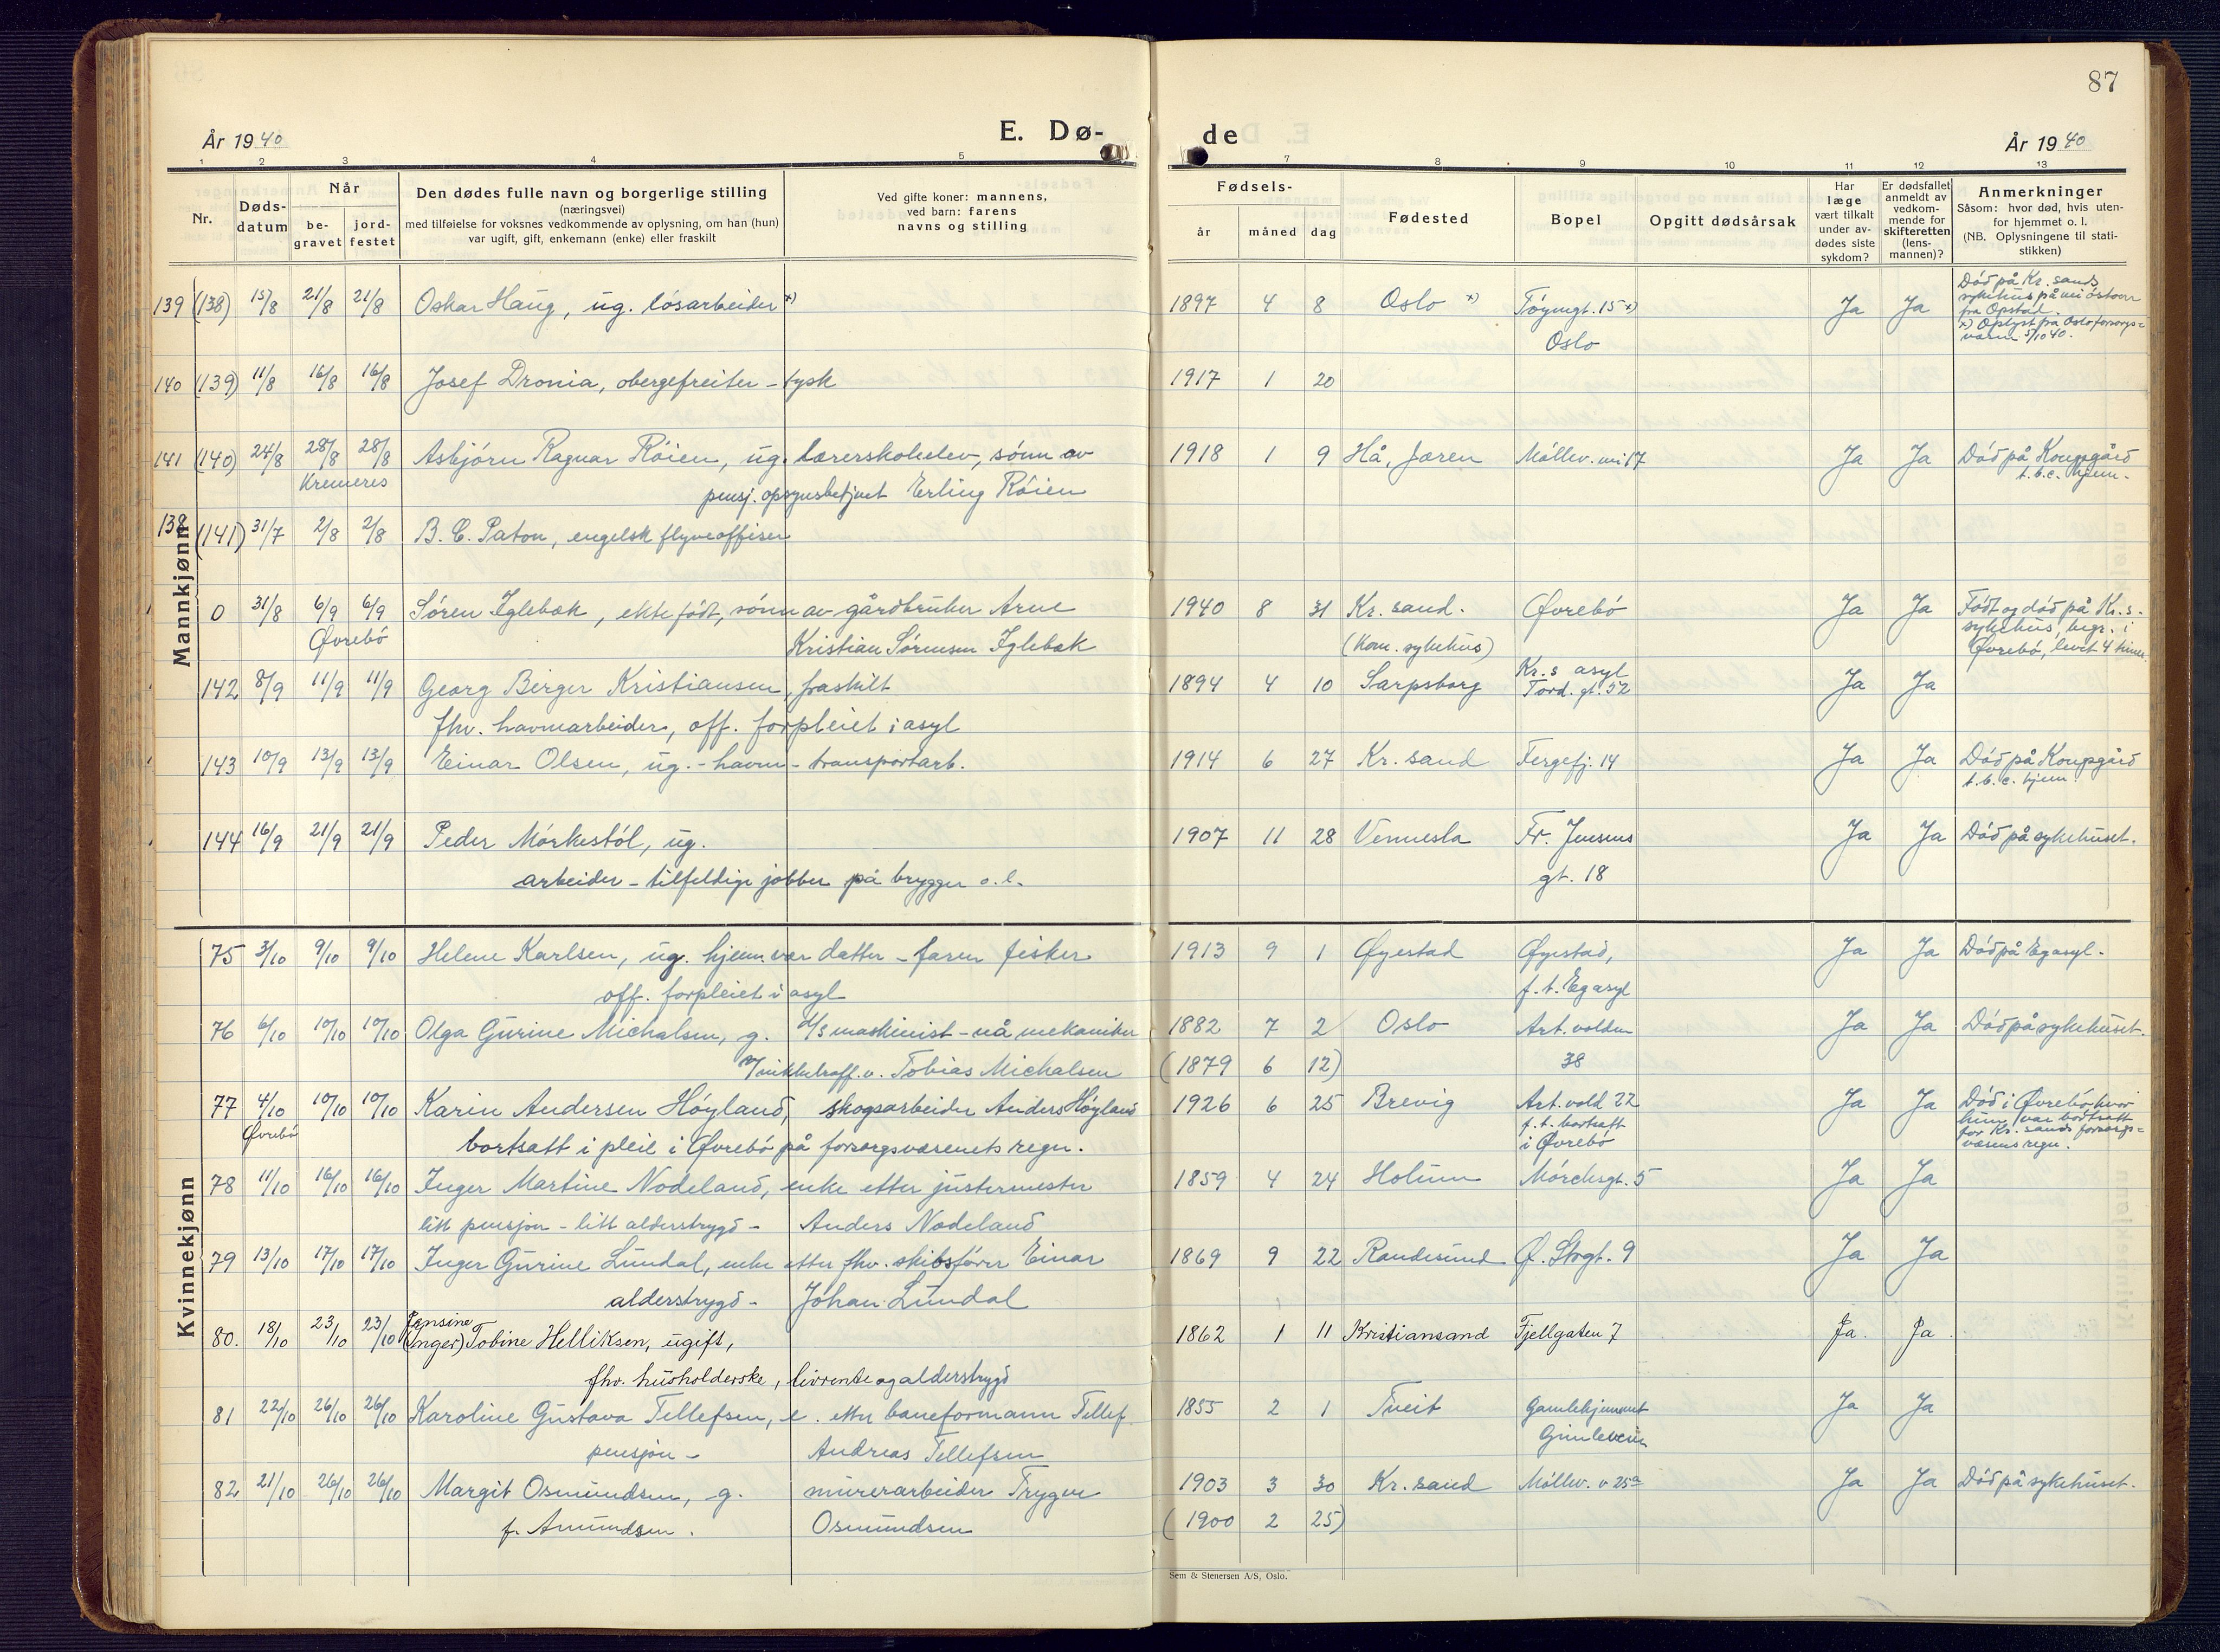 87
År 1940
E. Dø-
de
År 1940
1 2 3 4 5 7 8 9 10 11 12 13
Nr.
Døds-
datum
Når
be-
gravet
jord-
festet
Den dødes fulle navn og borgerlige stilling
(næringsvei)
med tilføielse for voksnes vedkommende av oplysning, om han (hun)
var ugift, gift, enkemann (enke) eller fraskilt
Ved gifte koner: mannens,
ved barn: farens
navns og stilling
Fødsels-
år måned dag
Fødested
Bopel
Opgitt dødsårsak
Har
læge
vært tilkalt
under av-
dødes siste
sykdom?
Er dødsfallet
anmeldt av
vedkom-
mende for
skifteretten
(lens-
mannen)?
Anmerkninger
Såsom: hvor død, hvis uten-
for hjemmet o. l.
(NB. Oplysningene til stati-
stikken)
Mannkjønn
139 (138) 15/8 21/8 21/8 Oskar Haug, ug. løsarbeider x) 1897 4 8 Oslo x) Tøyengt. 15 x) Ja Ja Død på Kr. sands
Oslo
sykehus på
fra Opstad.
x) Oplyst fra Oslo forsorgs-
vesen 5/10 40.
140 (139) 11/8 16/8 16/8 Josef Dronia, obergefreiter - tysk 1917 1 20
141 (140) 24/8 28/8 28/8 Asbjørn Ragnar Røien, ug. lærerskoleelev, sønn av 1918 1 9 Hå, Jæren Møllev. 17 Ja Ja Død på Kongsgård
Kremeres pensj. opsynsbetjent Erling Røien t.b.c. hjem.
138 (141) 31/7 2/8 2/8 B. C. Paton, engelsk flyveoffiser
0 31/8 6/9 6/9 Søren Iglebæk, ekte født, sønn av gårdbruker Arne 1940 8 31 Kr. sand. Øvrebø Ja Ja Født og død på Kr. s.
Øvrebø Kristian Sørensen Iglebæk (kom. sykehus) sykehus, begr. i
Øvrebø, levet 4 timer.
142 8/9 11/9 11/9 Georg Birger Kristiansen, fraskilt 1894 4 10 Sarpsborg Kr.s asyl Ja Ja
Tord. gt. 52
fhv. havnearbeider, off. forpleiet i asyl
143 10/9 13/9 13/9 Einar Olsen, ug. - havn - transportarb. 1914 6 27 Kr. sand Fergefj. 14 Ja Ja Død på Kongsgård
t.b.c. hjem.
144 16/9 21/9 21/9 Peder Mørkestøl, ug. 1907 11 28 Vennesla Fr. Jensens Ja Ja Død på sykehuset.
arbeider - tilfeldige jobber på brygger o. l. gt. 18
Kvinnekjønn
75 3/10 9/10 9/10 Helene Karlsen, ug. hjemmevær. datter - faren fisker 1913 9 1 Øyestad Øyestad, Ja Ja Død på Eg asyl.
off. forpleiet i asyl f. t. Eg asyl
76 6/10 10/10 10/10 Olga Gurine Michalsen, g. d/s maskinist - nå mekaniker 1882 7 2 Oslo Art. volden Ja Ja Død på sykehuset.
v/ nikkelraff. v. Tobias Michalsen (1879 6 12) 38
77 4/10 10/10 10/10 Karin Andersen Høyland, skogsarbeider Anders Høyland 1926 6 25 Brevig Art. vold 22 Ja Ja Død i Øvrebø hvor
Øvrebø bortsatt i pleie i Øvrebø på forsorgsvæsenets regn. f. t. bortsatt hun var bortsatt
i Øvrebø for Kr. sands forsorgs-
væsens regn.
78 11/10 16/10 16/10 Inger Martine Nodeland, enke etter justermester 1859 4 24 Holum Mørchsgt. 5 Ja Ja
litt pensjon - litt alderstrygd - Anders Nodeland
79 13/10 17/10 17/10 Inger Gurine Lundal, enke etter fhv. skibsfører Einar 1869 9 22 Randesund Ø. Stgt. 9 Ja Ja
alderstrygd - Johan Lundal
Jensine
80. 18/10 23/10 23/10 (Inger) Tobine Helliksen, ugift, 1862 1 11 Kristiansand Fjellgaten 7 Ja. Ja.
fhv. husholderske, livrente og alderstrygd
81 22/10 26/10 26/10 Karoline Gustava Tellefsen, e. etter baneformann Tellef 1855 2 1 Tveit Gamlehjemmet Ja Ja
pensjon - Andreas Tellefsen Gimleveien
82 21/10 26/10 26/10 Margit Osmundsen, g. murerarbeider Trygve 1903 3 30 Kr. sand Møllev. v 25a Ja Ja Død på sykehuset.
f. Amundsen. Osmundsen (1900 2 25)
Sem & Stenersen A/S, Oslo.